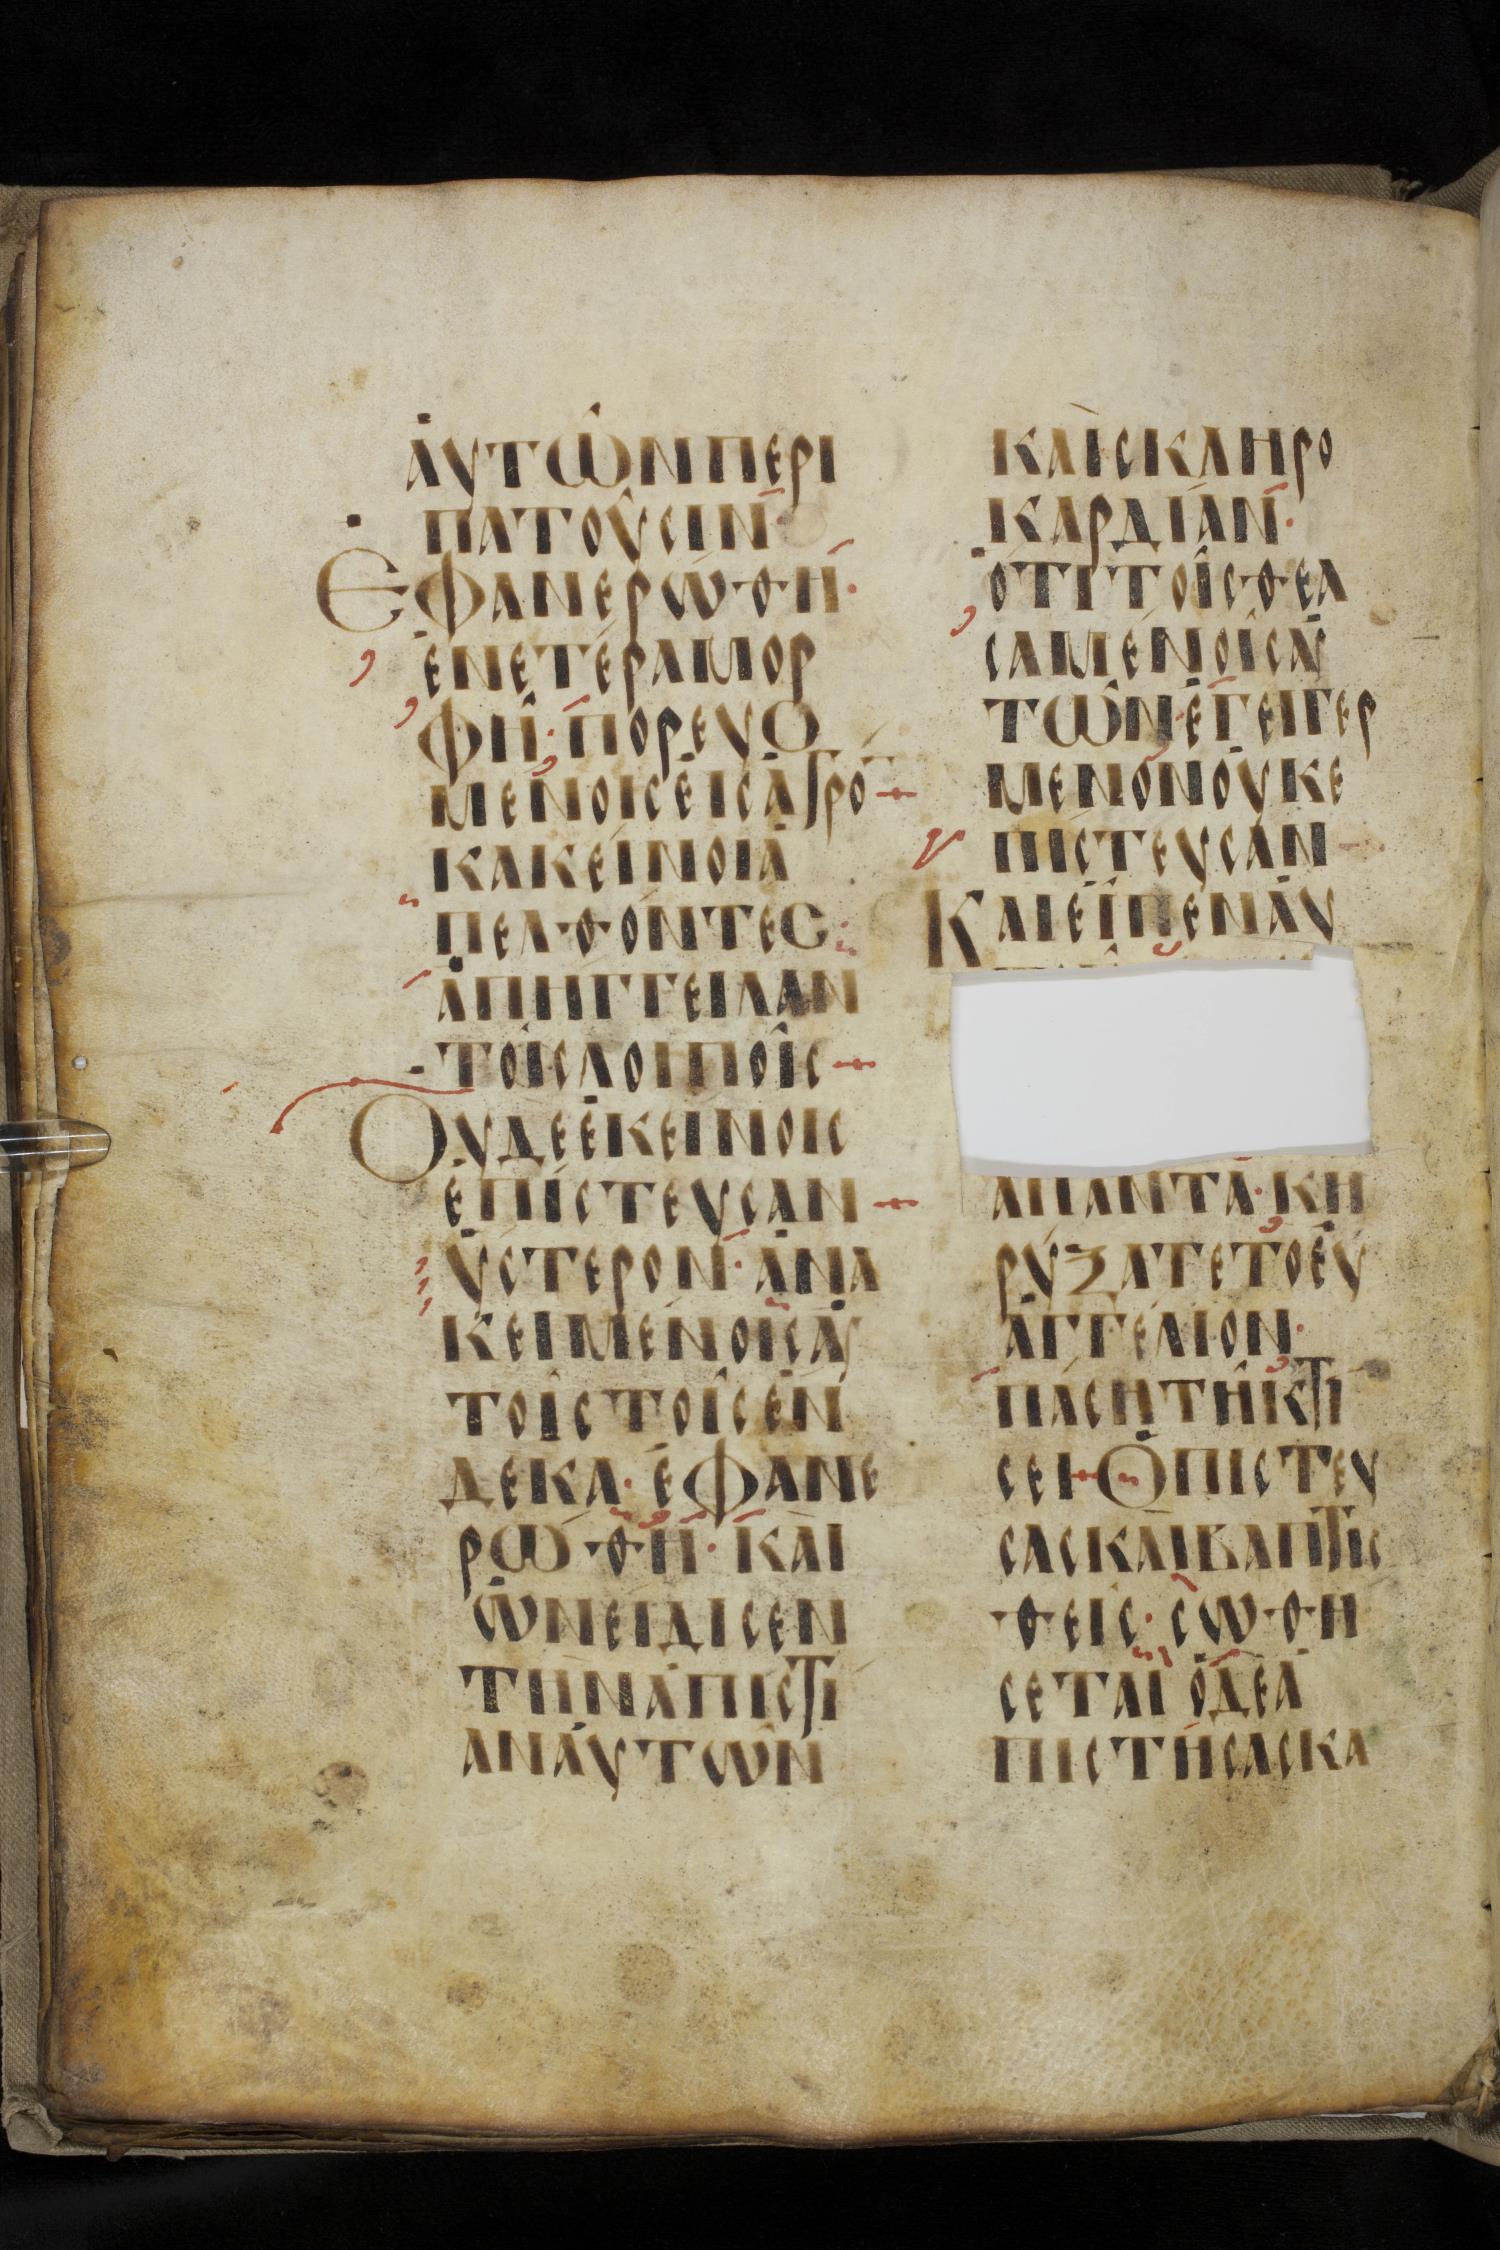 ἀυτῶν περι
πατοῦσιν·
Εφανερώθη·
ἐν ετέρα μορ
φῆ· πορευο
μένοις ἐις ἀγρό
κακεῖνοι ἀ
πελθόντες
ἀπήγγειλαν
τοῖς λοιποῖς
Ουδε ἐκείνοις
ἐπίστευσαν
ὕστερον· ἀνα
κειμένοις ἀυ
τοῖς τοῖς ἕν
δεκα· ἐφανε
ρώθη· καὶ
ὠνείδισεν
τὴν ἀπιστί
αν ἀυτῶν
καὶ σκληρο
καρδίαν·
ὅτι τοῖς θεα
σαμένοις ἀυ
τῶν· ἐγειγερ
μενον ὀυκ ε
πίστευσάν
Και εἶπεν ἀυ
απαντα· κη
ρύξατε τὸ ἐυ
ἀγγέλιον·
πάση τῆ κτί
σει Ὁ πιστεύ
σας καὶ βαπτισ
θεὶς· σωθή
σεται ὁ δὲ ἀ
πιστήσας κα